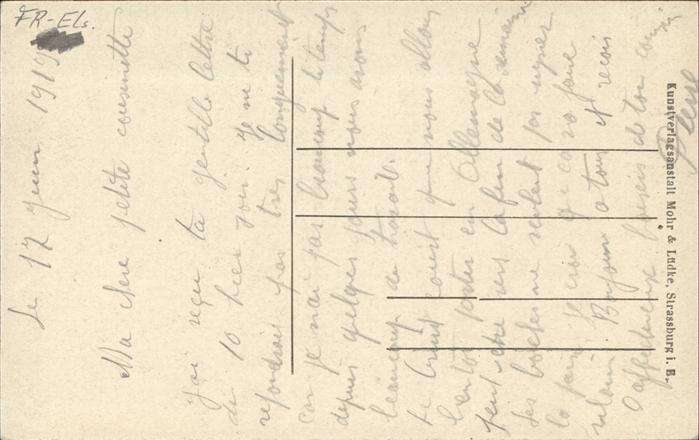 FR-Els.
Le 17 Juin 1919
Ma chere petite cousinette
J'ai reçu ta gentille lettre
du 10 hier soir. Je ne te
repondrai pas tres longuement
car je n'ai pas beaucoup de temps
depuis quelques jours nous avons
beaucoup de travail.
Le bruit court que nous allons
bientôt partir en Allemagne
peut-etre vers la fin de la semaine
Les boches ne veulent pas signer
la paix je crois que ca va faire
vilain Bonjour a tous et reçois
affectueux baisers de ton cousin
Kunstverlagsanstalt Mohr & Lüdke, Strassburg i. E.